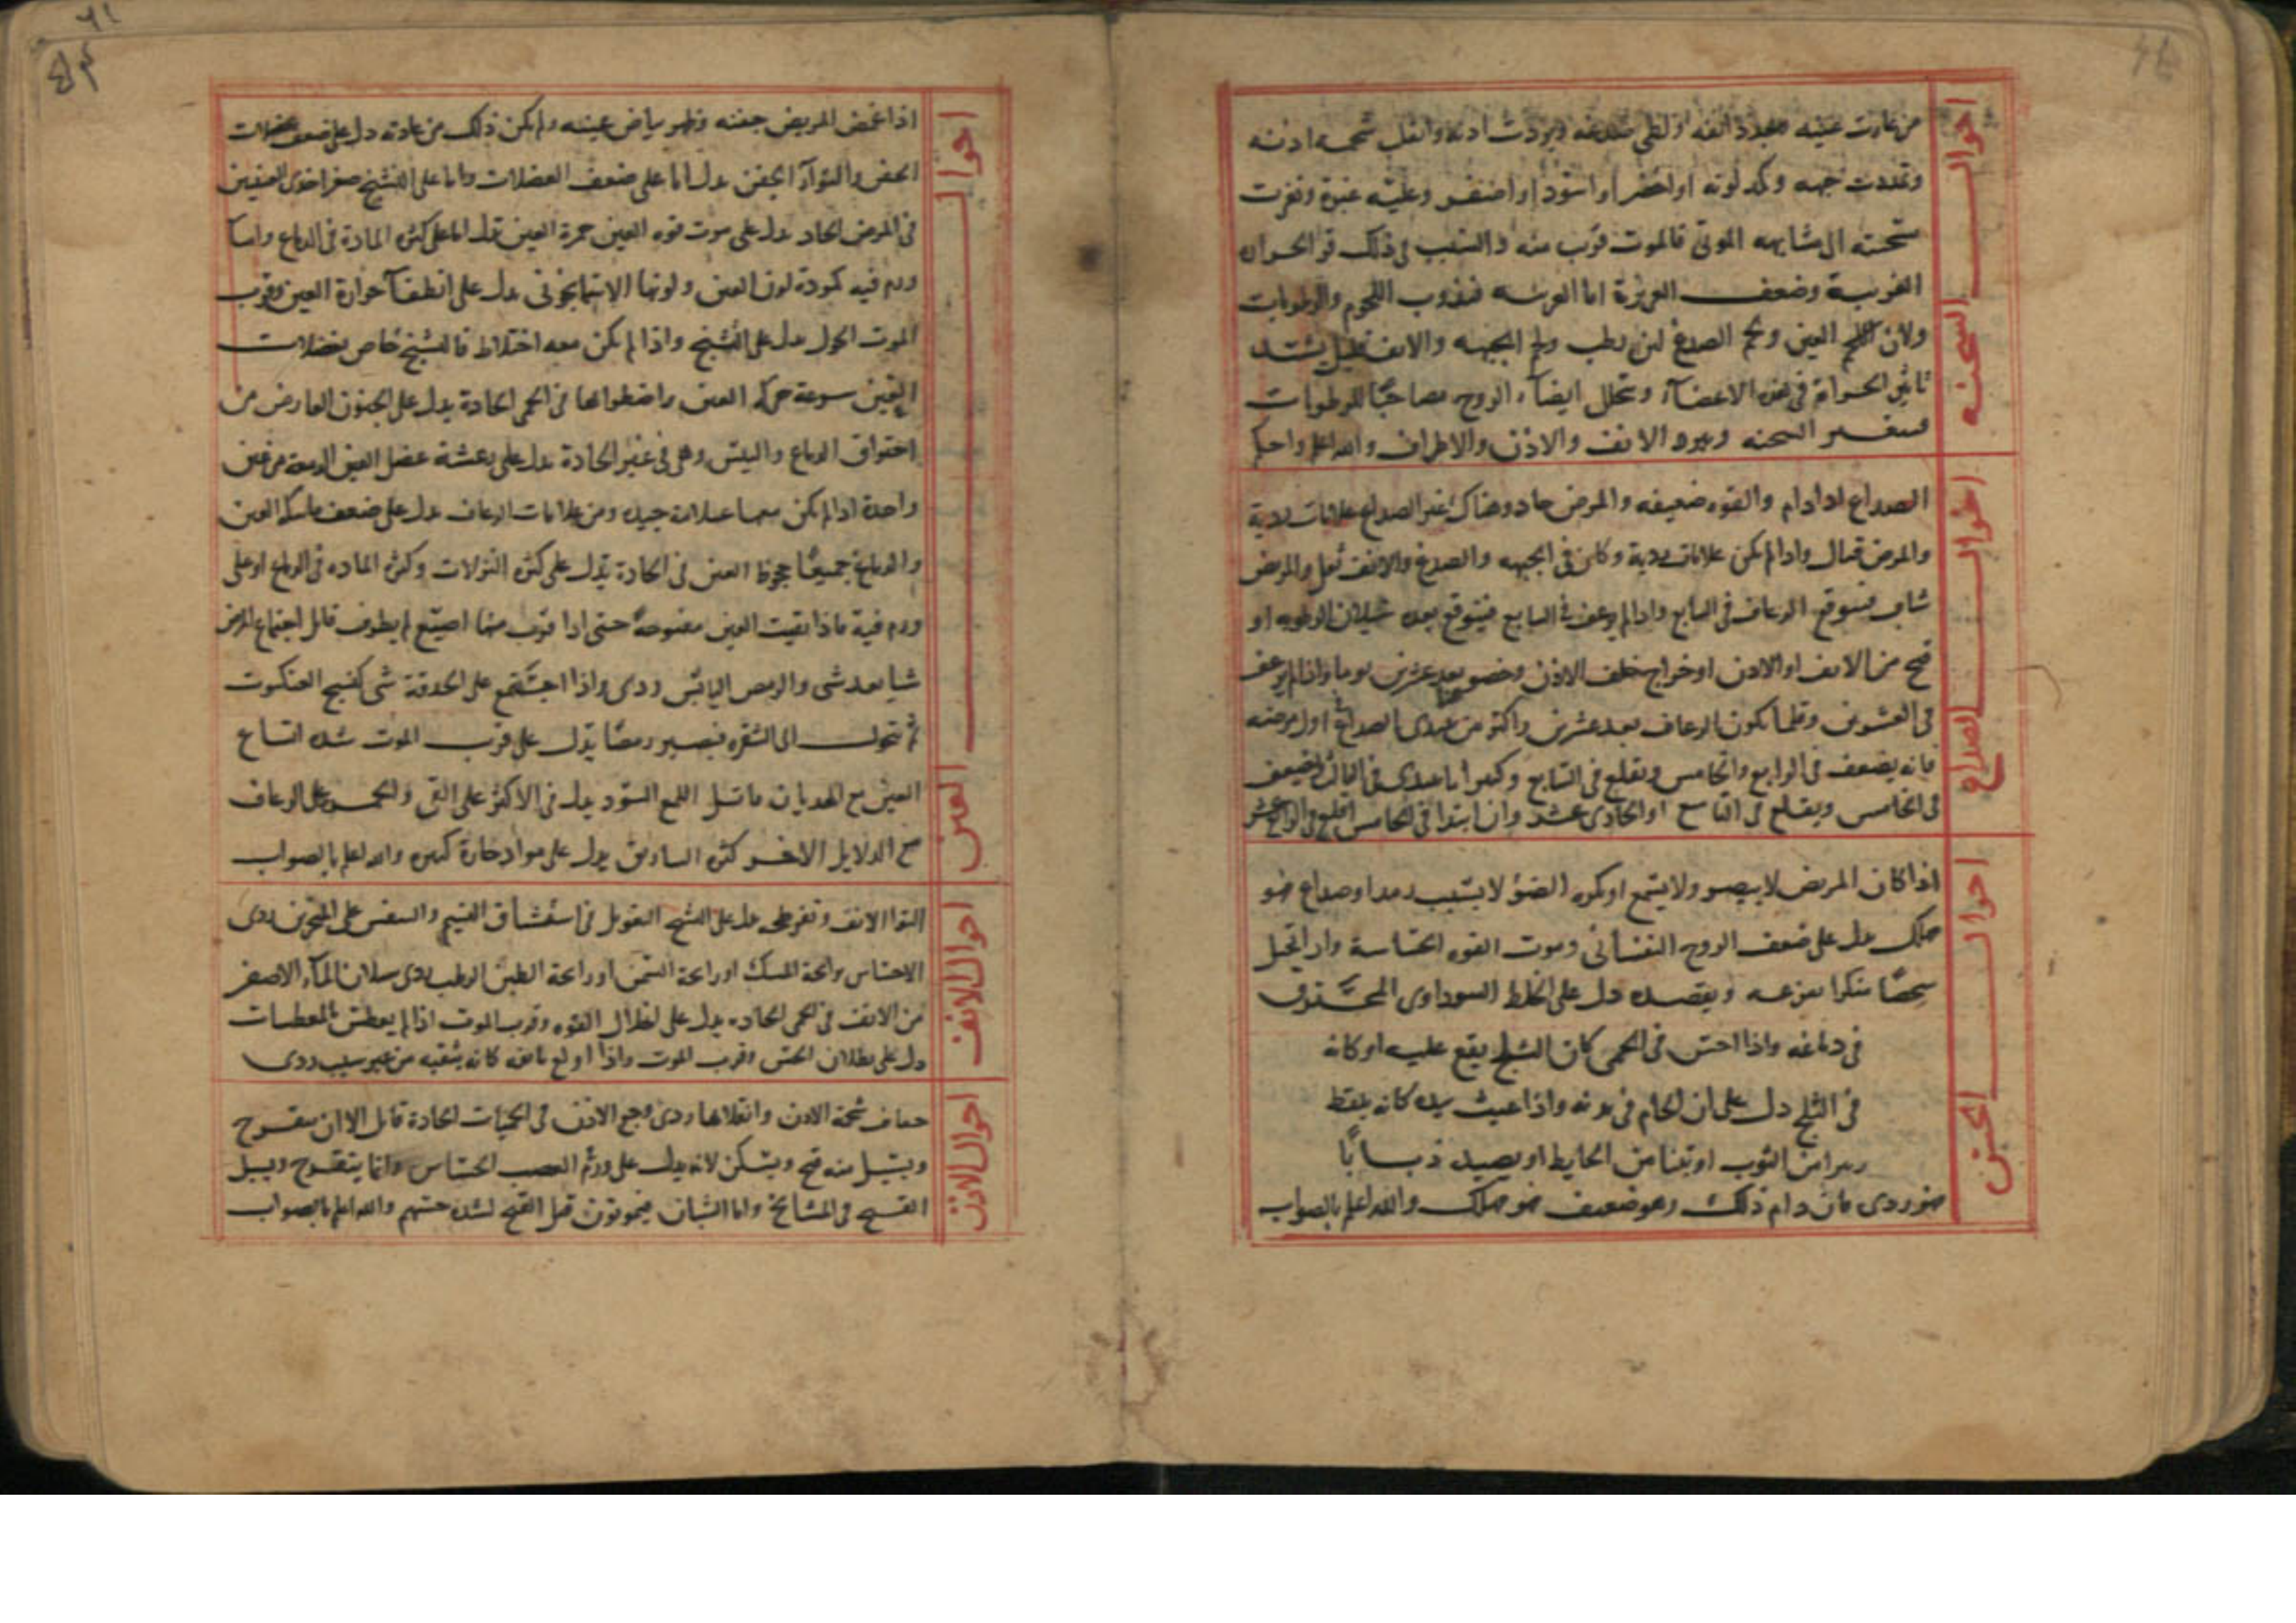 احوال السحنه
من غارت عينيه وتحدد انفه او لطى صدغه وبردت اذنه وانقلب شحمه اذنه
وتمددت جبهه وكمد لونه او اخضر او اسود او اصفر وعليه غبرة وتغيرت
سحنته الى مشابهه الموتى فالموت قرب منه والسبب فى ذلك قوة الحران
الغريبة وضعف الغريزة اما الغريبه فتذوب اللحوم والرطوبات
ولان لحم العين ولحم الصدغ لين رطب ولحم الجبهه والانف قليل يشتد
تاثير الحرارة فى هذه الاعضآء وتحلل ايضآء الروح مصاحبًا للرطوبات
فيتغير السحنه ويبرد الانف والاذن والاطراف والله اعلم واحكم
احوال الصداع
الصداع اذا دام والقوه ضعيفه والمرض حاد وهناك غير الصداع علامات ردية
والمرض قتال واذا لم يكن علامات ردية وكان فى الجبهه والصدغ والانف ثقل والمريض
شاب فيتوقع الرعاف فى السابع واذا لم يرعف فى السابع فيتوقع بعده سيلان الرطوبه او
قيح من الانف او الاذن او خراج خلف الاذن وخصوصا بعد عشرين يوما واذا لم يرعف
فى العشرين وقلما يكون الرعاف بعد عشرين واكثر من يبتدى الصداع اول مرضه
فانه يضعف فى الرابع والخامس ويقلع فى السابع وكثيرا ما يبتدى فى الثالث ويضعف
فى الخامس ويقلع فى التاسع او الحادى عشر وان ابتدا فى الخامس اقلع فى الرابع عشر
احوال الحس
اذا كان المريض لا يبصر ولا يسمع او يكره الضؤ لا بسبب رمد او صداع فهو
هالك يدل على ضعف الروح النفسانى وموت القوه الحساسة واذا تخيل
شخصًا منكرا يفزعه ويقصده دل على الخلط السوداوى المحترق
فى دماغه واذا احس فى الحمى كان الثلج يقع عليه او كانه
فى الثلج دل على ان الحام فى بدنه واذا عبث بيده كانه يلقط
زبيرا من الثوب او تبنا من الحايط او يصيد ذبابًا
فهو ردى فان دام ذلك وهو ضعيف فهو هالك والله اعلم بالصواب
احوال العين
اذا غمض المريض جفنه وظهر بياض عينيه ولم يكن ذلك من عادته دل على ضعف عضلات
الجفن والتوآء الجفن يدل اما على ضعف العضلات واما على التشنج صغر احدى العينين
فى المرض الحاد يدل على موت قوه العين حمرة العين تدل اما على كثرة المادة فى الدماغ واما
ورم فيه كمودة لون العين ولونها الاسمانجونى يدل على انطفآء حرارة العين وقرب
الموت الحول يدل على التشنج واذا لم يكن معه اختلاط فالتشنج خاص بعضلات
العين سرعة حركه العين واضطرابها فى الحمى الحادة يدل على الجنون العارض من
احتراق الدماغ واليبس وهى فى غير الحادة يدل على رعشة عضل العين الدمعة من عين
واحدة اذا لم يكن معها علامات جيده ومن علامات الرعاف يدل على ضعف ماسكه العين
والدماغ جميعًا جحوظ العين فى الحادة يدل على كثره النزلات وكثره الماده فى الدماغ او على
ورم فيه فاذا بقيت العين مفتوحة حتى اذا قرب منها اصبع لم يطرف قابل اجتماع الرمص
شيا بعد شى والرمص اليابس ردى واذا اجتمع على الحدقة شى كنسيج العنكبوت
ثم تتحول الى الشفره فيصير رمصًا يدل على قرب الموت شده اتساع
العين مع الهذيان قاتل اللمع السود يدل فى الاكثر على القى والحمر على الرعاف
مع الدلايل الاخر كثره يدل على مواد حارة كثيره والله اعلم بالصواب
احوال الانف
التوا الانف وتفرطحه يدل على التشنج التعويل فى استنشاق النسيم والتنفس على المنخرين ردى
الاحساس رائحة المسك او رائحة السمن او رائحة الطين الرطب ردى سيلان المآء الاصفر
من الانف فى الحمى الحاده يدل على القوه وقرب الموت اذا لم يعطس بالمعطسات
دل على بطلان الحس وقرب الموت واذا اولع بانفه كانه ينقيه من غير سبب ردى
احوال الاذن
جفاف شحمة الاذن وانقلابها ردى وجع الاذن فى الحميات الحادة قاتل الا ان يتقرح
ويسيل منه قيح ويسكن لانه يدل على ورم العصب الحساس وانما يتقرح ويسيل
القيح فى المشايخ واما الشبان فيموتون قبل القيح لشده حسهم والله اعلم بالصواب